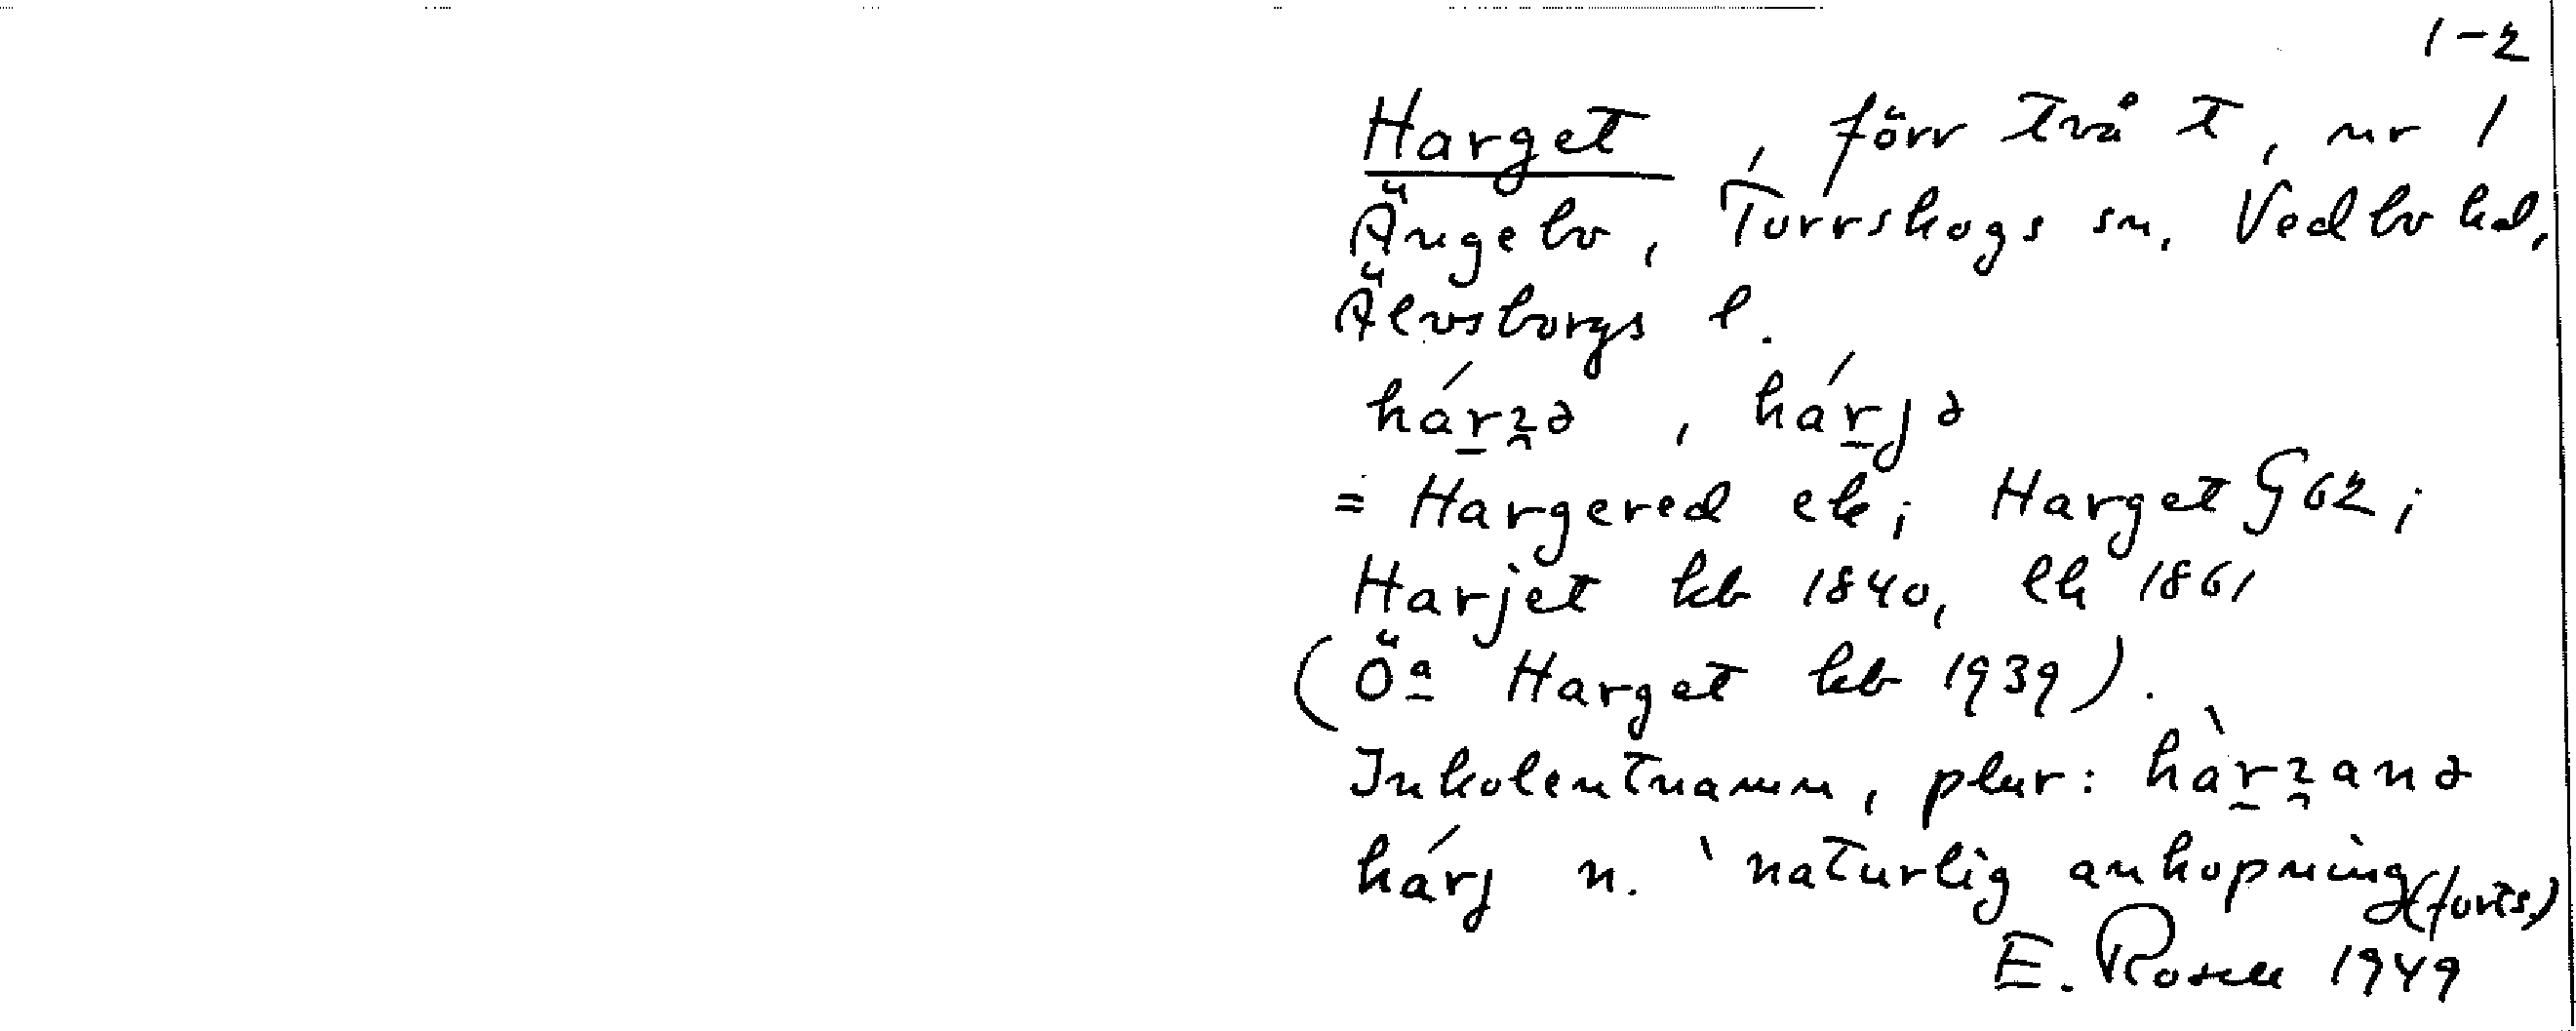 1-2
Harget, förr två t, nr 1
Ängebo, Torrskogs sn, Vedbo hd,
Älvsborgs l.
hárʒə, hárjə
= Hargered ek; Harget G62;
Harjet kb 1840, lh 1861
(Öª Harget kb 1939).
Inkolentnamn, plur: hàrʒanə
hárj n. 'naturlig anhopning (forts.)
E. Rosell 1949